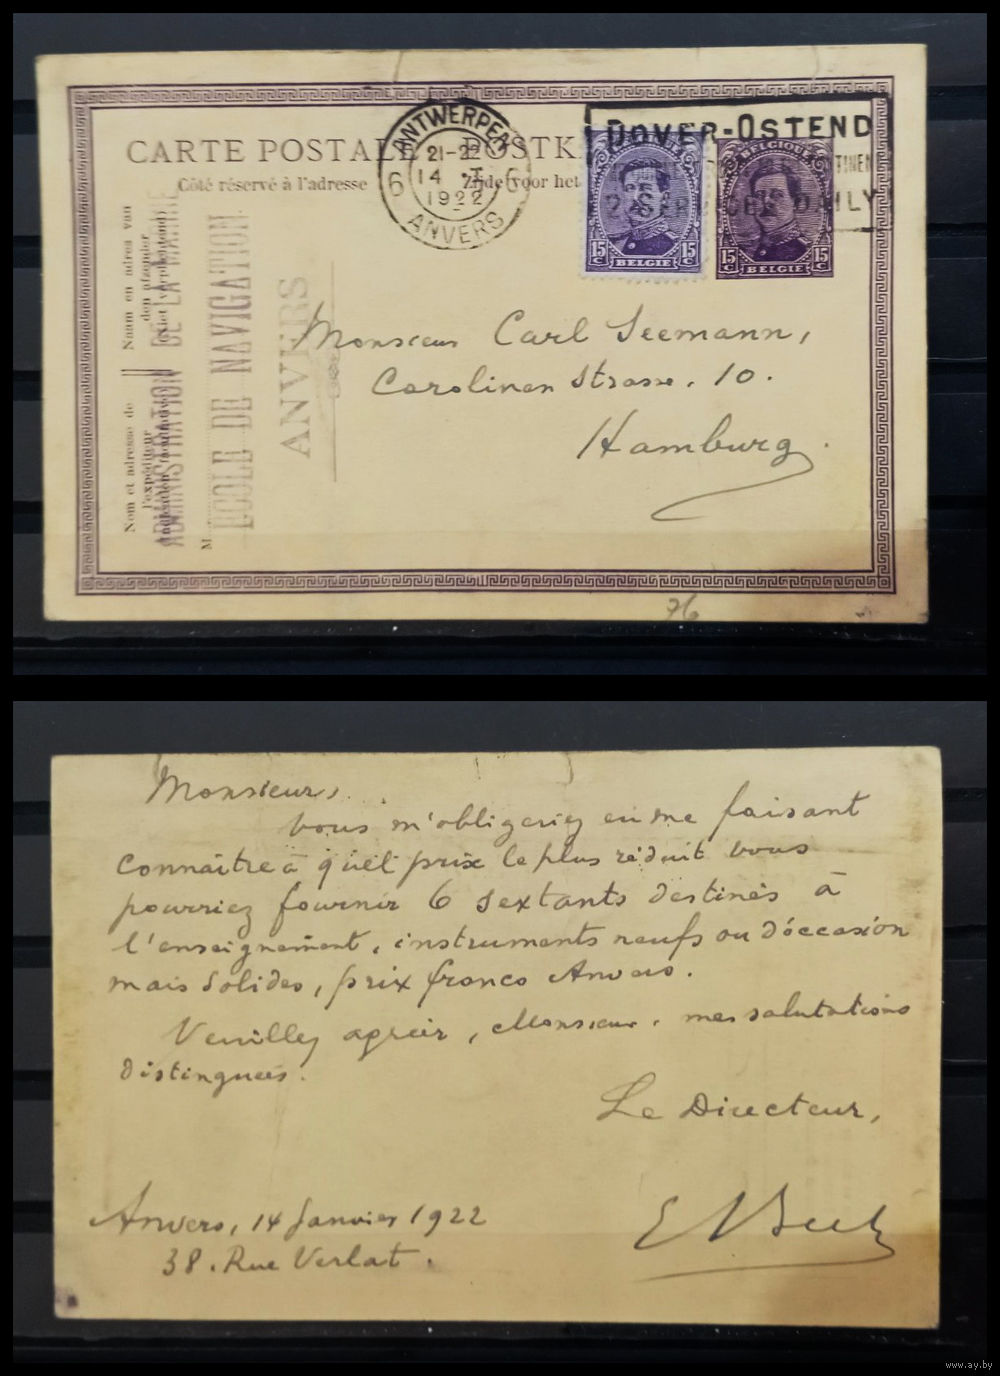 CARTE POSTALE POSTK
Côté réservé à l'adresse Zijde voor het
ANTWERPEN
21-22
6 14 I 6
1922
ANVERS
DOVER-OSTEND
DAILY
BELGIQUE
15 c 15 c
BELGIE
15 c 15 c
BELGIE
Naam en adres van
den afzender
Nom et adresse de
l'expéditeur
M.
ADMINISTRATION DE LA MARINE
ECOLE DE NAVIGATION
ANVERS
Monsieur Carl Seemann,
Carolinen Strasse. 10.
Hamburg.
76
Monsieur,
vous m'obligeriez en me faisant
connaître à quel prix le plus réduit vous
pourriez fournir 6 sextants destinés à
l'enseignement, instruments neufs ou d'occasion
mais solides, prix franco Anvers.
Veuillez agréer, Monsieur, mes salutations
distinguées.
Le Directeur,
Anvers, 14 Janvier 1922
38. Rue Verlat.
www.ay.by